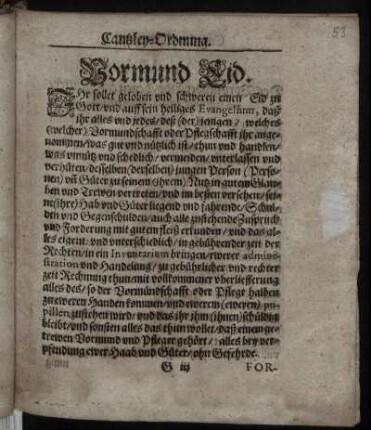 53
Cantzley-Ordnung.
Vormund Eid.
Ihr sollet geloben vnd schweren einen Eid zu
Gott / vnd auff sein heiliges Evangelium, daß
ihr alles vnd jedes / deß (der) jenigen / welches
(welcher) Vormundschafft oder Pflegschafft ihr ange-
nommen / was gut vnd nützlich ist / thun vnd handlen /
was vnnütz vnd schedlich / vermeiden / vnterlassen vnd
verhüten / desselben (derselben) jungen Person (Perso-
nen) vñ Güter zu seinem (ihrem) Nutz in gutem Glau-
ben vnd Trewen vertreten / vnd im besten versehen / sei-
ne (ihre) Hab vnd Güter ligend vnd fahrende / Schul-
den vnd Gegenschulden / auch alle zustehende Zuspruch
vnd Forderung mit gutem fleiß erkunden / vnd das al-
les eigent- vnd vnterschiedlich / in gebührender zeit der
Rechten / in ein Inventarium bringen / ewerer admini-
stration vnd Handelung / zu gebührlicher vnd rechter
zeit Rechnung thun / mit vollkommener vberliefferung
alles des / so der Vormündschafft oder Pflegt halben
zu eweren Handen kommen / vnd ewerem (eweren) pu-
pillen zustehen wird / vnd das ihr jhm (ihnen) schuldig
bleibt / vnd sonsten alles das thun wollet / daß einem ge-
trewen Vormund vnd Pfleger gehört / alles bey ver-
pfendung ewer Haab vnd Güter / ohn Gefehrde.
G iij FOR-